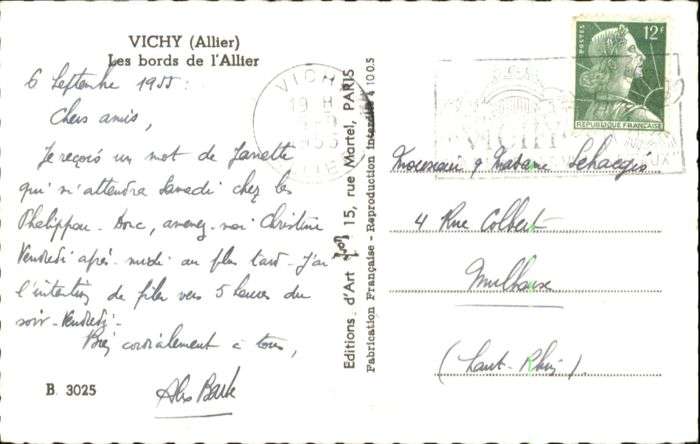 VICHY (Allier)
Les bords de l'Allier
6 Septembre 1955 :
Chers amis,
Je reçois un mot de Janette
qui m'attendra Samedi chez les
Phelippeau. Donc, amenez-moi Christine
Vendredi après-midi au plus tard. J'ai
l'intention de filer vers 5 heures du
soir - Vendredi.
Bien cordialement à tous,
B. 3025
Editions d'Art 15, rue Martel, PARIS
Fabrication Française - Reproduction Interdite 41005
VICHY
19 H
1955
ALLIER
POSTES
12F
REPUBLIQUE FRANÇAISE
Monsieur & Madame
4 Rue Colbert
Mulhouse
(Haut-Rhin).